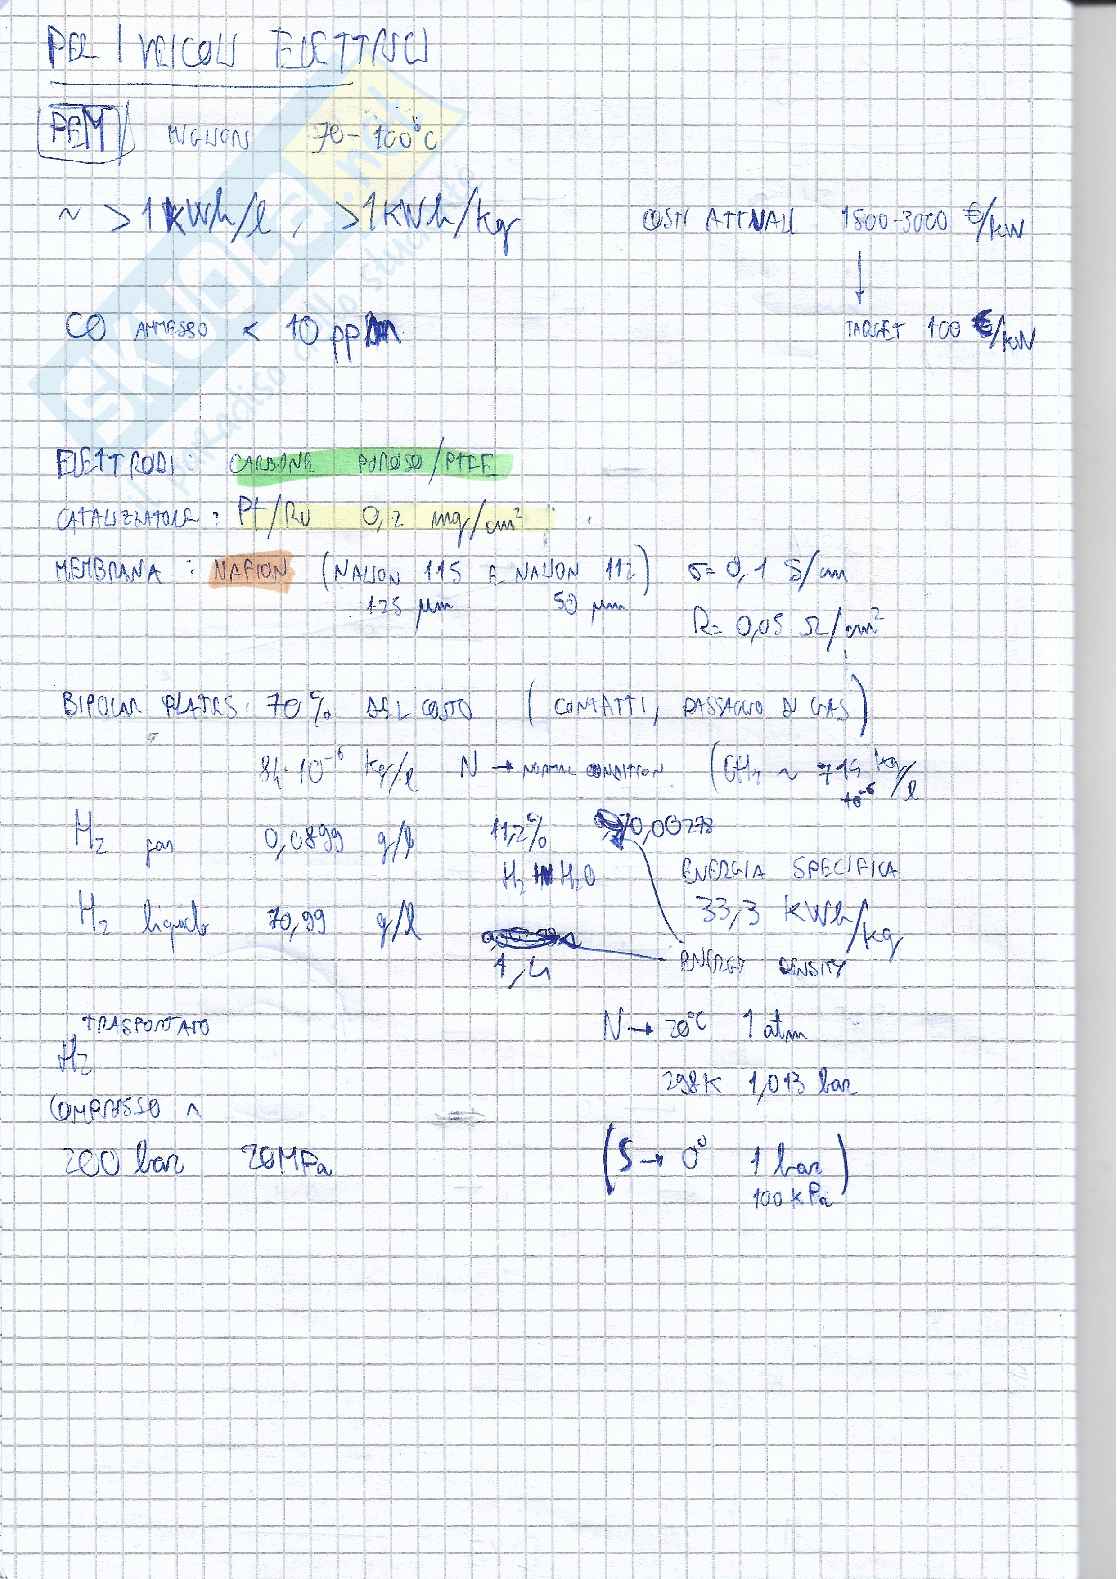 PER I VEICOLI ELETTRICI
PEM MIGLIORI 70-100°C
~ >1KWh/l, >1KWh/kg COSTI ATTUALI 1500-3000 €/kW
CO AMMESSO < 10 ppm TARGET 100 €/kW
ELETTRODI: CARBONE POROSO/PTFE
CATALIZZATORE: Pt/Ru 0,2 mg/cm²
MEMBRANA: NAFION (NAFION 115 E NAFION 112) σ=0,1 S/cm
125 μm 50 μm R=0,05 Ω/cm²
BIPOLAR PLATES: 70% DEL COSTO (CONTATTI, PASSAGGIO DI GAS)
84·10⁻⁶ kg/l N → NORMAL CONDITION (CH₄ ~ kg/l
10⁻⁶
H₂ gas 0,0899 g/l 11,2% 0,00278
H₂ IN H₂O ENERGIA SPECIFICA
H₂ liquido 70,99 g/l 33,3 KWh/kg
1,4 ENERGY DENSITY
TRASPORTATO N → 20°C 1 atm
H₂
298K 1,013 bar
COMPRESSO A
200 bar 20MPa (S → 0° 1 bar)
100 kPa
SKUOLA.net
paradiso dello studente